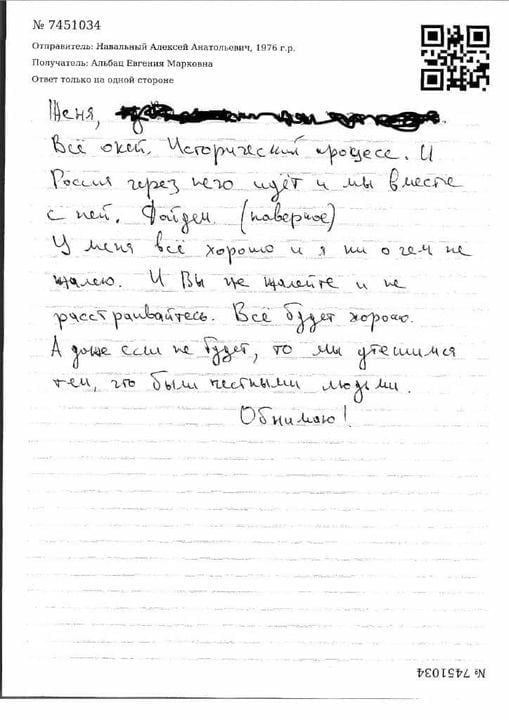 № 7451034
Отправитель: Навальный Алексей Анатольевич, 1976 г.р.
Получатель: Альбац Евгения Марковна
Ответ только на одной стороне
Женя,
Всё окей. Исторический процесс. И
Россия через него идёт и мы вместе
с ней. Дойдем (наверное)
У меня всё хорошо и я ни о чем не
жалею. И Вы не жалейте и не
расстраивайтесь. Всё будет хорошо.
А даже если не будет, то мы утешимся
тем, что были честными людьми.
Обнимаю!
№ 7451034